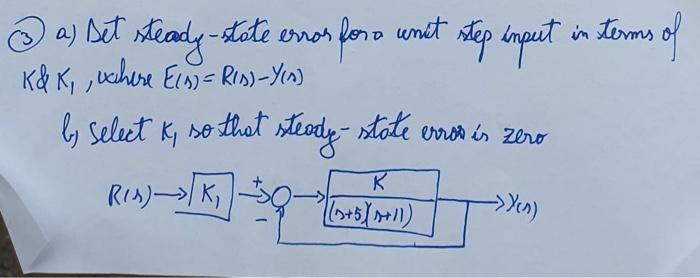 ③ a) Det steady-state error for a unit step input in terms of
K & K₁, where E(s) = R(s) - Y(s)
b) Select K₁ so that steady-state error is zero
R(s) → K₁ + - K / (s+5)(s+11) → Y(s)